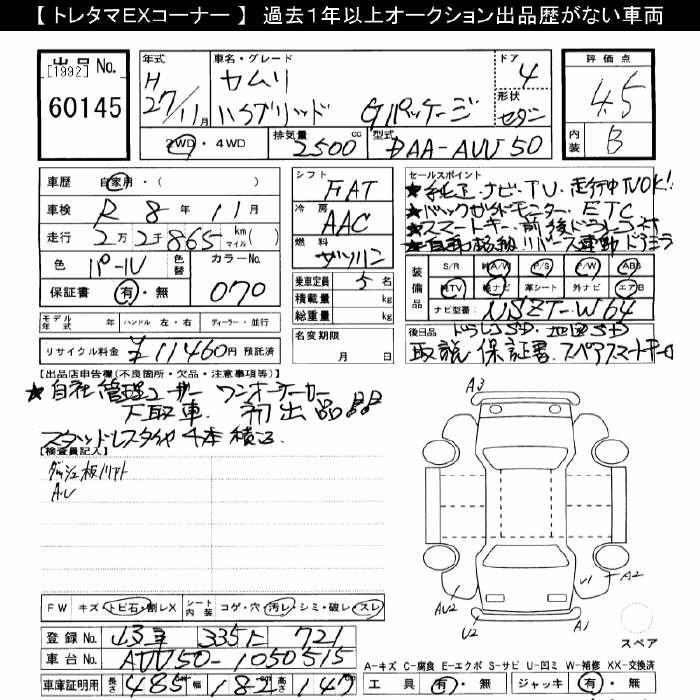 【 トレタマEXコーナー 】 過去１年以上オークション出品歴がない車両
出品 No.
[1992]
60145
年式
H
27/11月
車名・グレード
カムリ
ハイブリッド Gパッケージ
ドア
4
形状
セダン
2WD・4WD
排気量
2500cc
型式
DAA-AVV50
評価点
4.5
内装
B
車歴 自家用・( )
車検 R 8年 11月
走行 2万2千865 km(マイル)
色 パール 色替 カラーNo. 070
保証書 有・無
モデル年式 年 ハンドル 左・右 ディーラー・並行
リサイクル料金 ¥11460円 預託済
シフト
FAT
冷房
AAC
燃料
ガソリン
乗車定員 5名
積載量 kg
総重量 kg
名変期限
月 日
セールスポイント
★純正ナビ・TV 走行中TVOK!!
★バックガイドモニター ETC
★スマートキー 前後ドラレコ付
★自動格納リバース連動ドアミラ
装備品
S/R A/W P/S P/W ABS
TV ナビ 革シート 外ナビ エアB
ナビ型番: NSZT-W64
後日品 ドラレコSD・地図SD
取説 保証書 スペアスマートキー
【出品店申告欄(不良箇所・欠品・注意事項等)】
★自社管理ユーザー ワンオーナーカー
下取車 初出品
スタッドレスタイヤ4本積込
【検査員記入】
ダッシュ板ソリアト
A.U
A3
AU2
U2
A1
U1
A2
スペア
FW キズ・トビ石・割レX シート内装 コゲ・穴・汚レ・シミ・破レ・スレ
登録 No. 335 721
車台 No. AVV50-1050515
車庫証明用 長さ 485 幅 182 高さ 147
A-キズ C-腐食 E-エクボ S-サビ U-凹ミ W-補修 XX-交換済
工具 有・無 ジャッキ 有・無